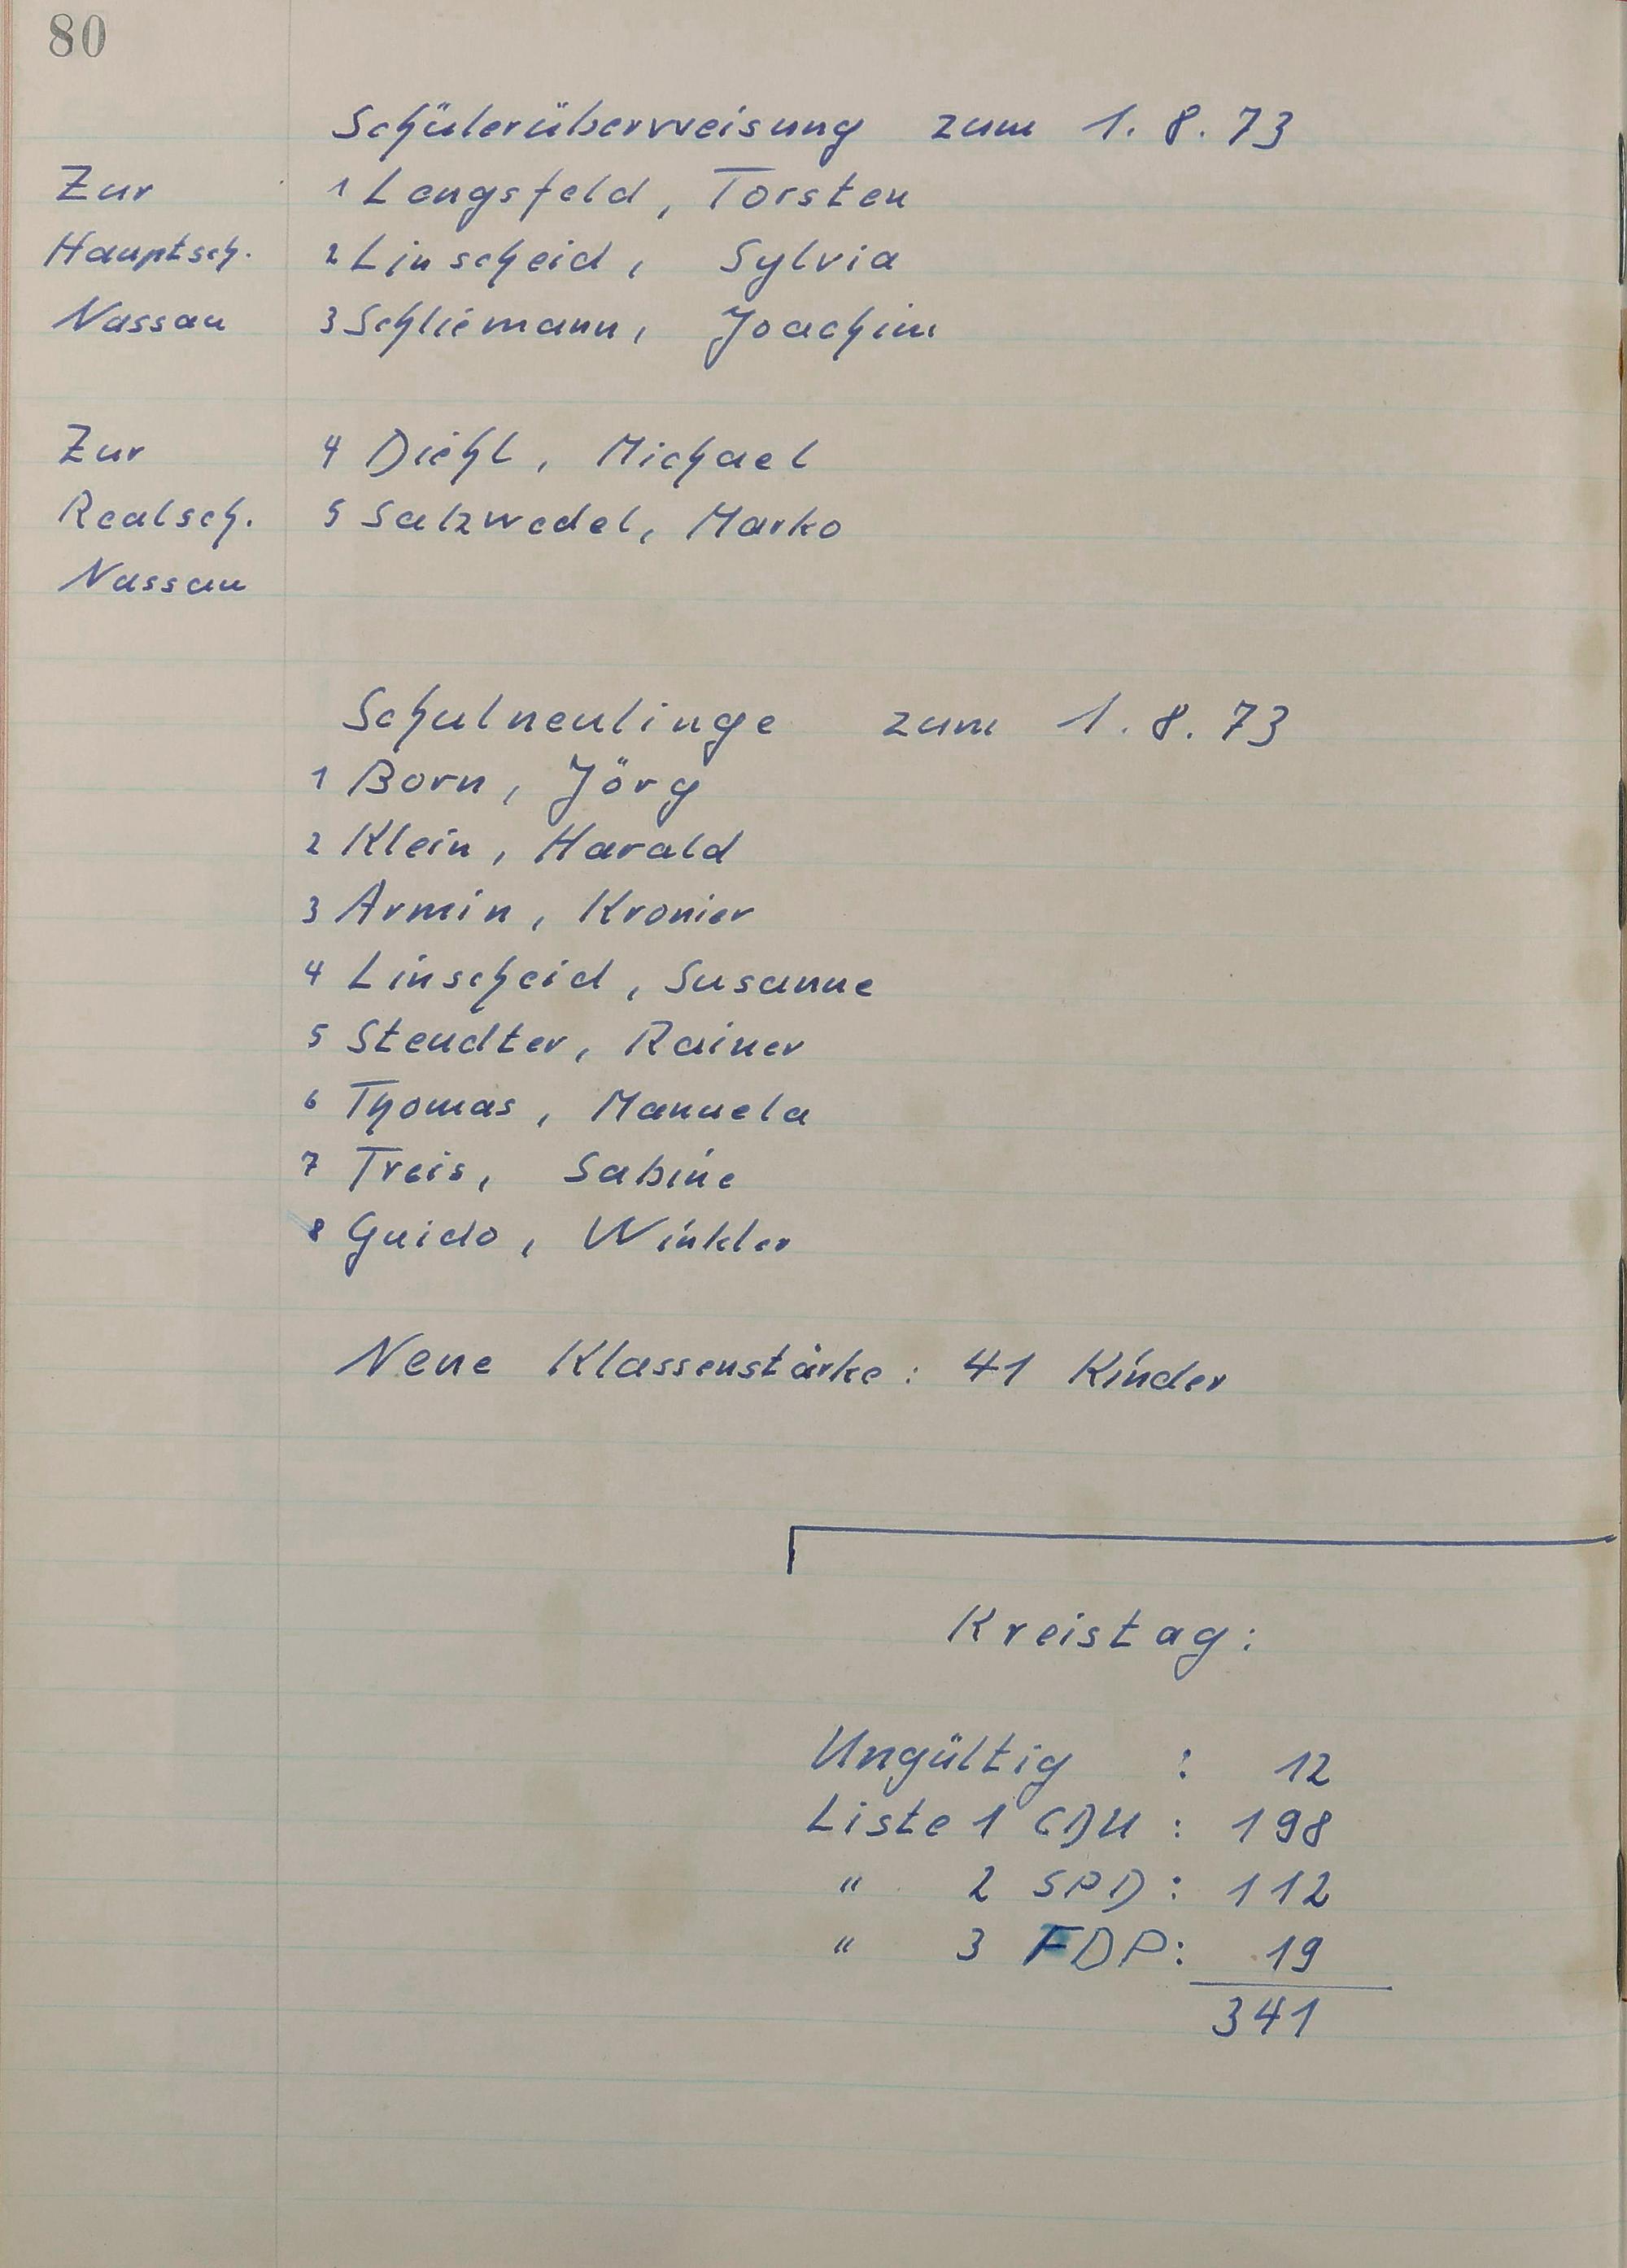 80
Schülerüberweisung zum 1. 8. 73
Zur 1 Lengsfeld, Torsten
Hauptsch. 2 Linscheid, Sylvia
Nassau 3 Schliemann, Joachim
Zur 4 Diehl, Michael
Realsch. 5 Salzwedel, Marko
Nassau
Schulneulinge zum 1. 8. 73
1 Born, Jörg
2 Klein, Harald
3 Armin, Kronier
4 Linscheid, Susanne
5 Steudter, Rainer
6 Thomas, Manuela
7 Treis, Sabine
8 Guido, Winkler
Neue Klassenstärke: 41 Kinder
Kreistag:
Ungültig : 12
Liste 1 CDU : 198
" 2 SPD : 112
" 3 FDP: 19
341